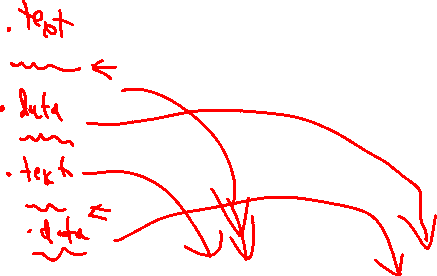 .text
.data
.text
.data